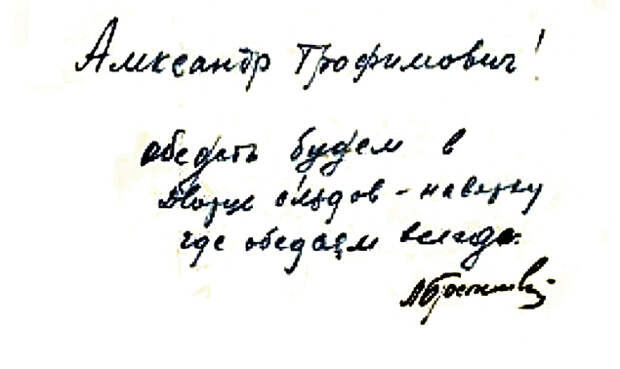 Александр Трофимович!
обедать будем в
Дворце съездов - наверху
где обедаем всегда.
Л Брежнев